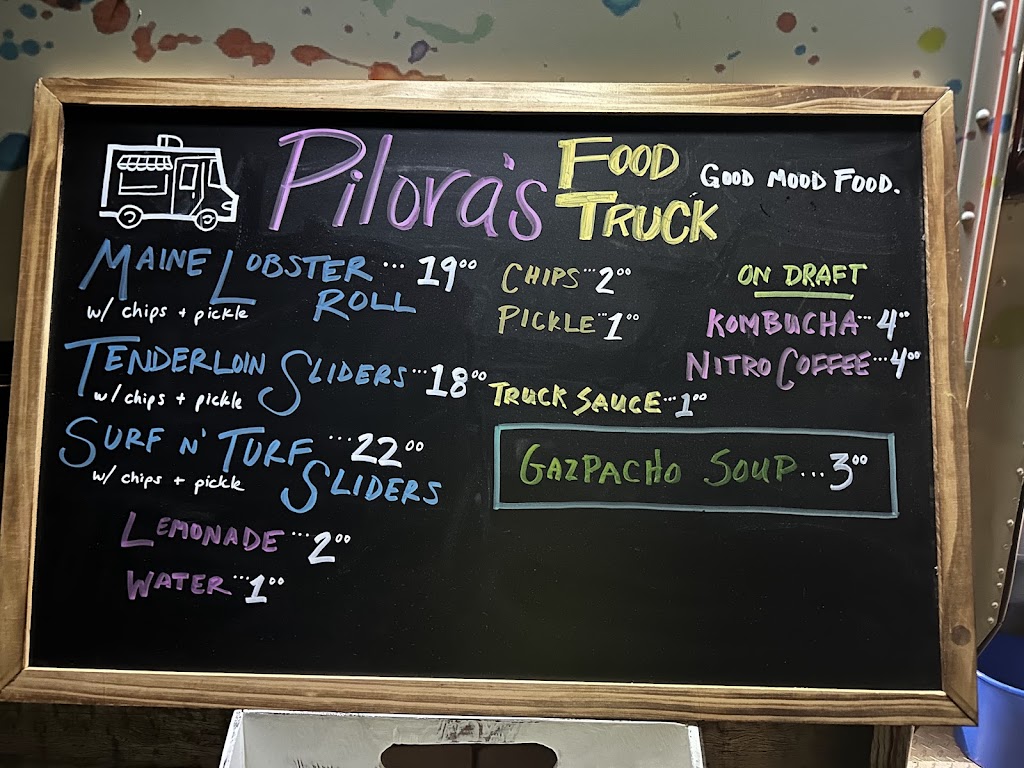 Pilora's FOOD TRUCK
GOOD MOOD FOOD.
MAINE LOBSTER ROLL ... 19⁰⁰
w/ chips + pickle
TENDERLOIN SLIDERS ... 18⁰⁰
w/ chips + pickle
SURF N' TURF SLIDERS ... 22⁰⁰
w/ chips + pickle
LEMONADE ... 2⁰⁰
WATER ... 1⁰⁰
CHIPS ... 2⁰⁰
PICKLE ... 1⁰⁰
TRUCK SAUCE ... 1⁰⁰
ON DRAFT
KOMBUCHA ... 4⁰⁰
NITRO COFFEE ... 4⁰⁰
GAZPACHO SOUP ... 3⁰⁰